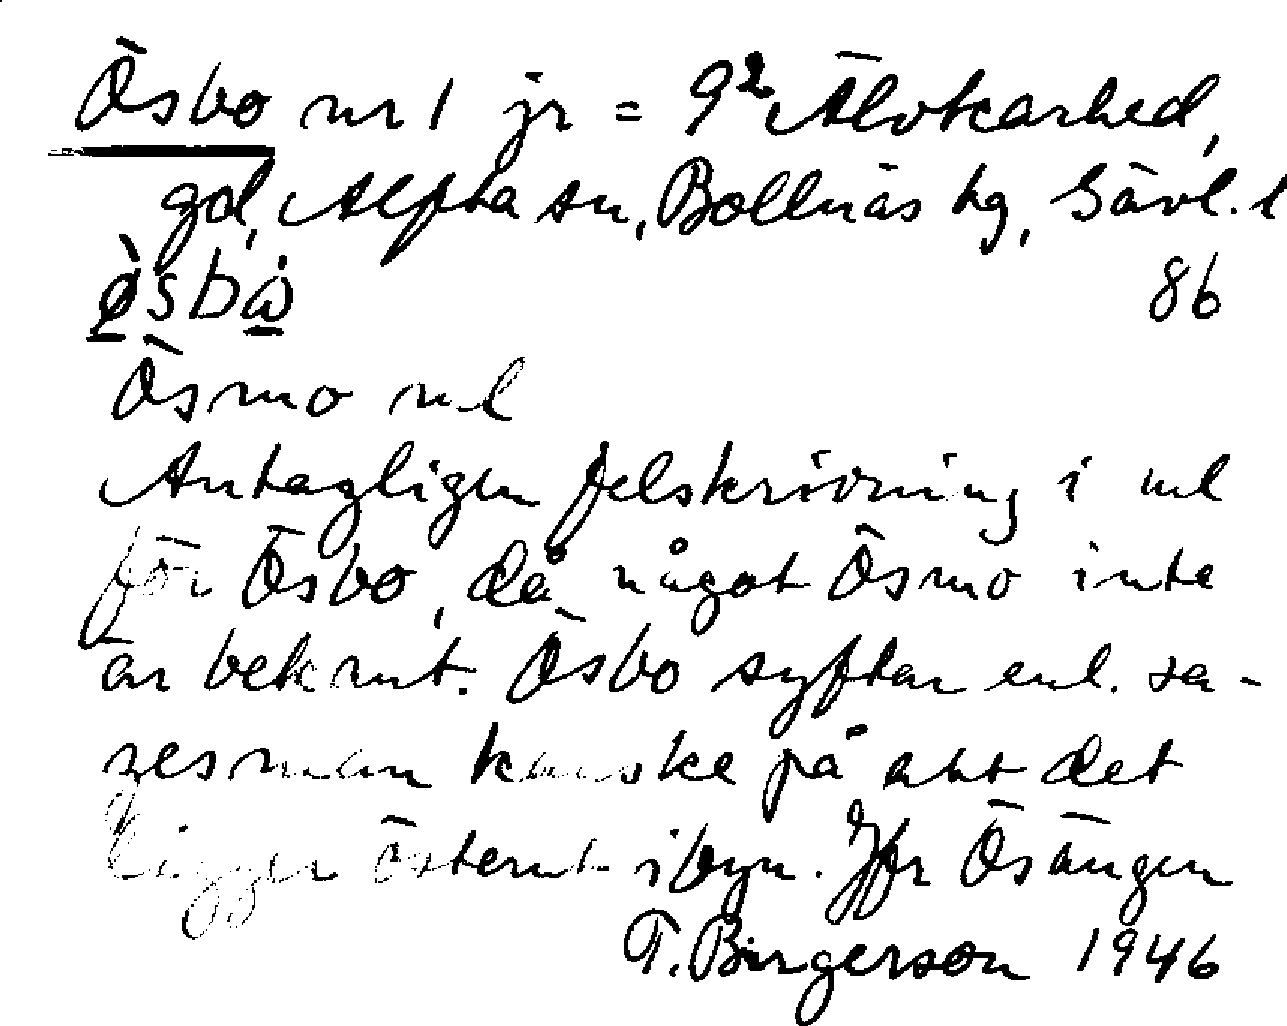 Ösbo nr 1 jr = 9² Älvkarhed,
gd, Alfta sn, Bollnäs tg, Gävl. l
ö̀sbå̇
86
Ösmo ml
Antagligen felskrivning i ml
för Ösbo, då något Ösmo inte
är bekant. Ösbo syftar enl. sa-
gesman kanske på att det
ligger österut i byn. Jfr Ösängen
T. Birgerson 1946